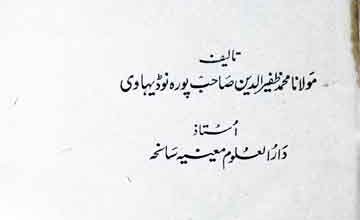 تالیف
مولانا محمد ظفیر الدین صاحب پورہ نوڈیہاوی
اُستاذ
دارُالعلوم معینیہ سانحہ